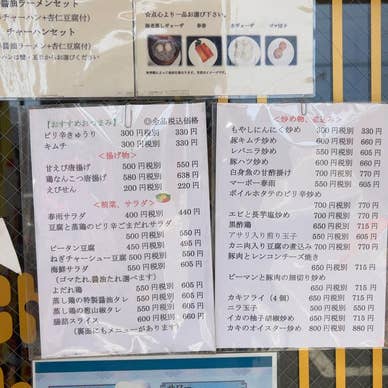 醤油ラーメンセット
醤油ラーメン+杏仁豆腐付)
チャーハンセット
醤油ラーメン+杏仁豆腐付)
ハンは蟹・豆からお選びください
☆点心より一品お選び下さい。
春巻
ゴマ団子
【おすすめおつまみ】 ◎全品税込価格
ピリ辛きゅうり 300円税別 330円
キムチ 300円税別 330円
<揚げ物>
甘えび唐揚げ 500円税別 550円
鶏なんこつ唐揚げ 580円税別 638円
えびせん 200円税別 220円
<前菜、サラダ>
春雨サラダ 400円税別 440円
豆腐と蒸鶏のピリ辛ごまだれサラダ
500円税別 550円
ピータン豆腐 450円税別 495円
ねぎチャーシュー豆腐 500円税別 550円
海鮮サラダ 550円税別 605円
(ゴマたれ醤油たれ選べます)
よだれ鶏 550円税別 605円
蒸し鶏の特製醤油タレ 500円税別 550円
蒸し鶏の棒山椒タレ 500円税別 550円
腸詰スライス 600円税別 660円
(裏面にもメニューがあります)
<炒め物、煮込み>
もやしにんにく炒め 300円税別 330円
豚キムチ炒め 500円税別 550円
レバニラ炒め 500円税別 550円
豚ハツ炒め 600円税別 660円
白身魚の甘酢揚げ 600円税別 660円
マーボー春雨 500円税別 550円
ボイルホタテのピリ辛炒め
700円税別 770円
エビと長芋塩炒め 700円税別 770円
黒酢鶏 650円税別 715円
アサリ入り煎り玉子 550円税別 605円
カニ肉入り豆腐の煮込み 700円税別 770円
豚肉とレンコンチーズ焼き
650円税別 715円
ピーマンと豚肉の細切り炒め
650円税別 715円
カキフライ(4個) 650円税別 715円
ニラ玉子 500円税別 550円
イカの柚子胡椒炒め 600円税別 660円
カキのオイスター炒め 800円税別 880円